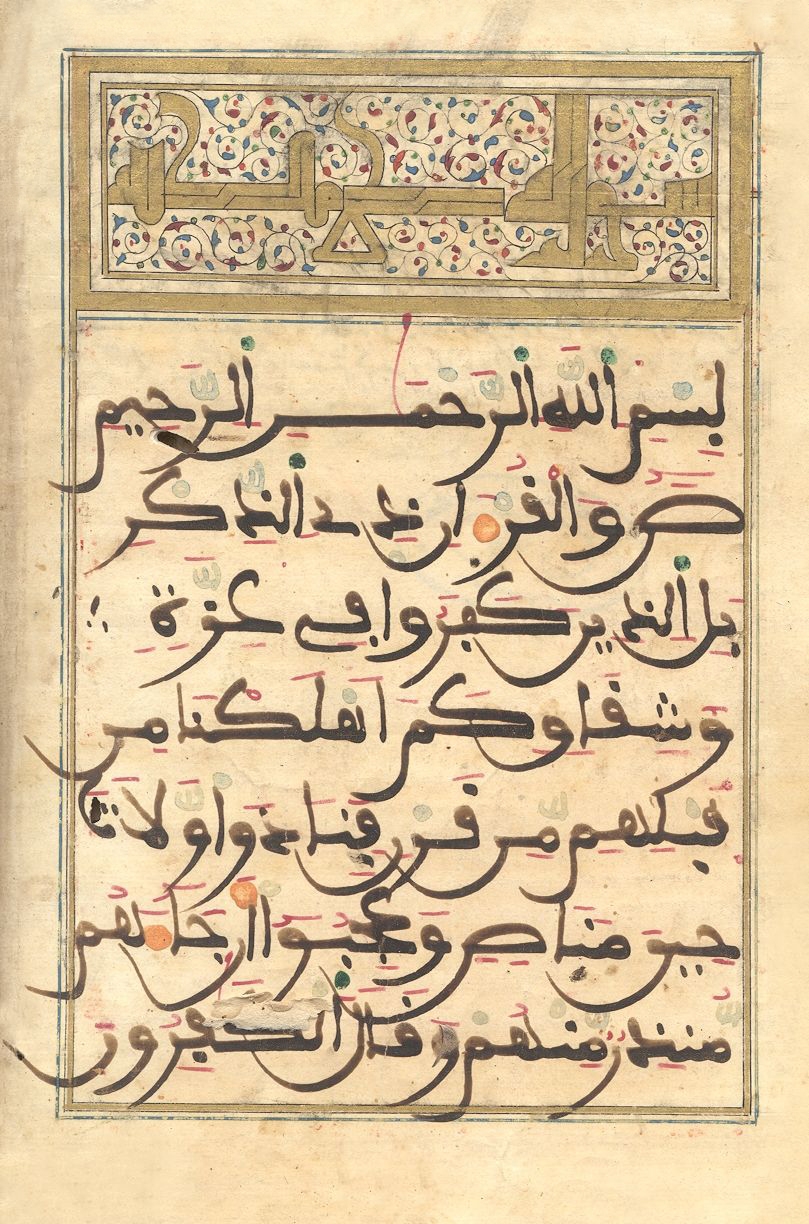 بِسْمِ اللَّهِ الرَّحْمَٰنِ الرَّحِيمِ
صَ وَالْقُرْءَانِ ذِي الذِّكْرِ
بَلِ الذِينَ كَفَرُوا فِي عِزَّةٍ
وَشِقَاقٍ كَمْ اَهْلَكْنَا مِن
قَبْلِهِم مِّن قَرْنٍ فَنَادَوا وَّلَاتَ
حِينَ مَنَاصٍ وَعَجِبُوا أَن جَاءَهُم
مُّنذِرٌ مِّنْهُمْ وَقَالَ الْكَٰفِرُونَ